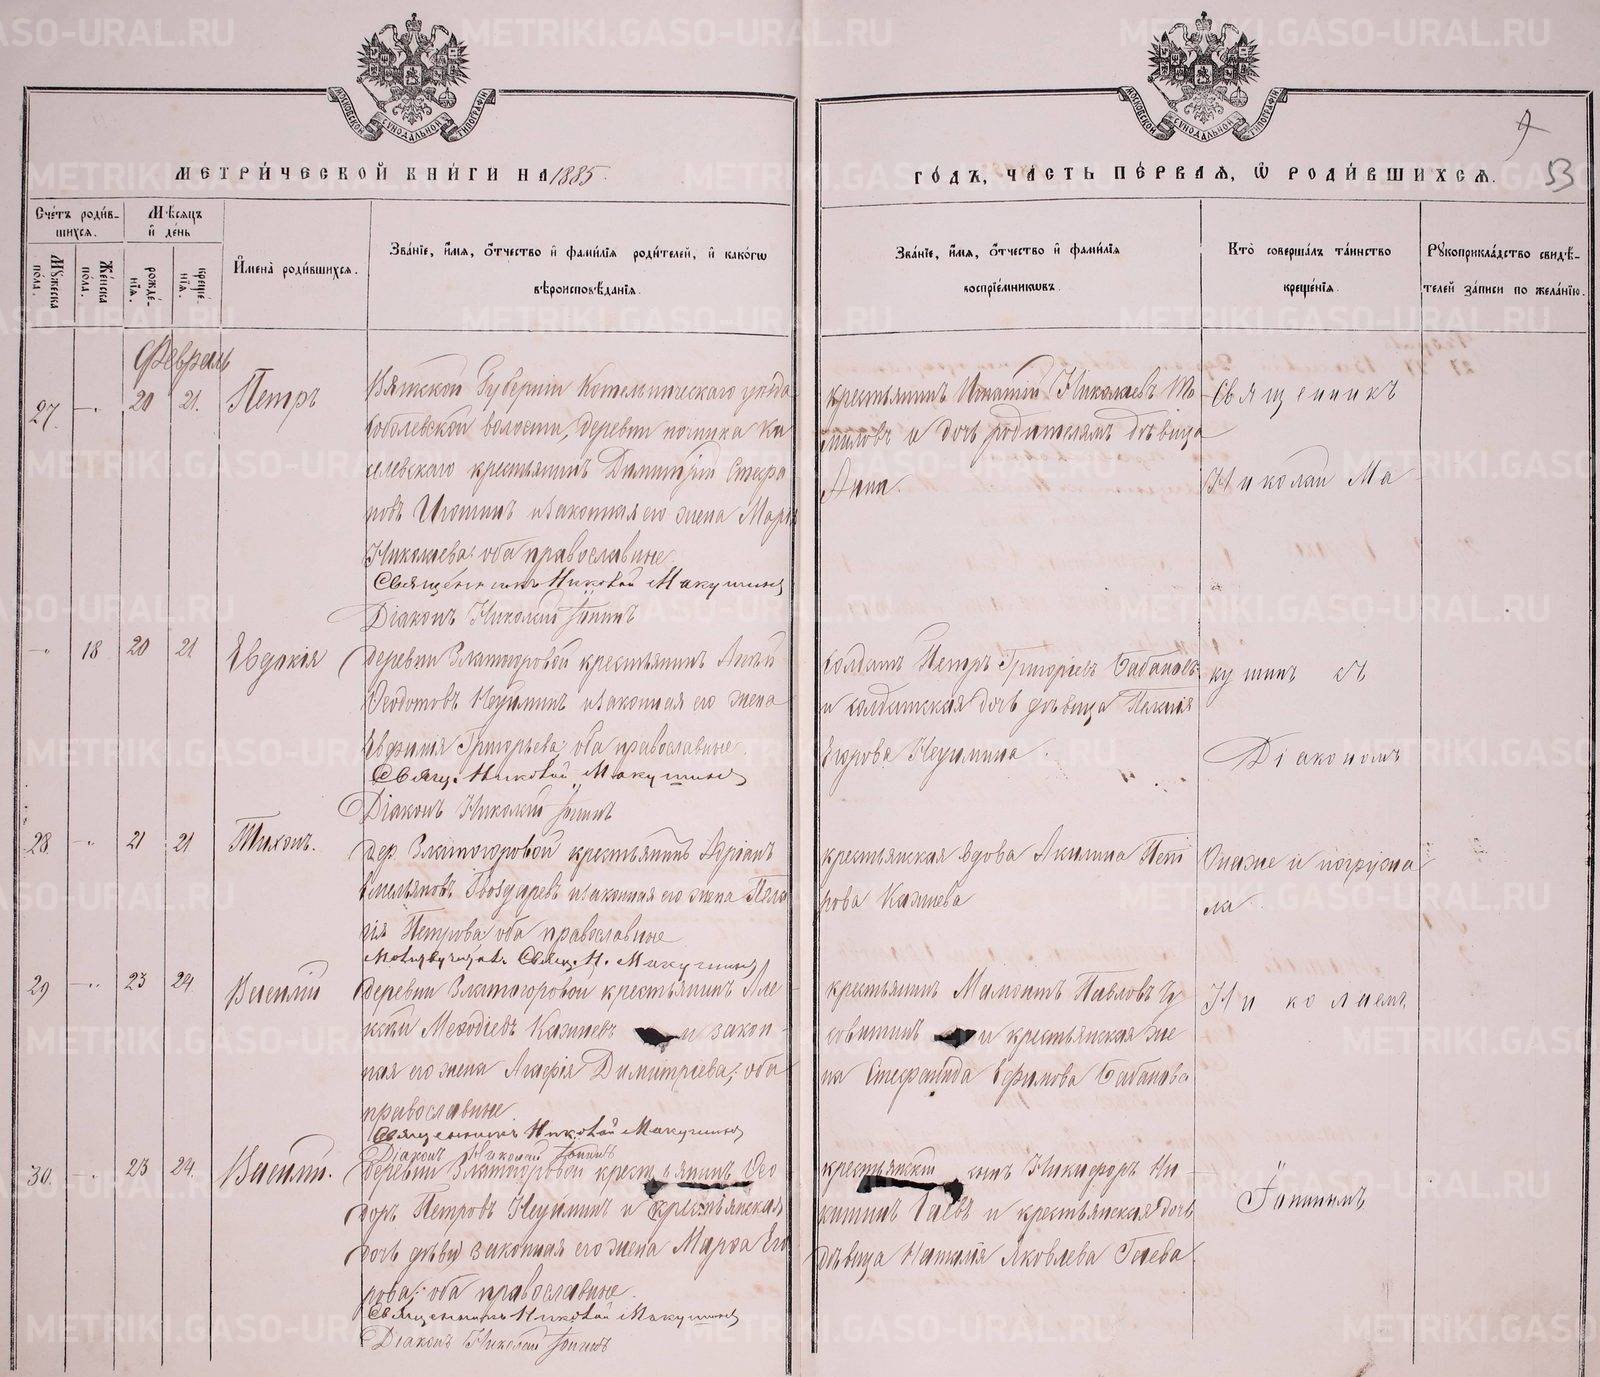 МОСКОВСКОЙ СѴНОДАЛЬНОЙ ТИПОГРАФІИ
МОСКОВСКОЙ СѴНОДАЛЬНОЙ ТИПОГРАФІИ
9
МЕТРИ́ЧЕСКОЙ КНИ́ГИ НА 1885.
ГО́ДЪ, ЧА́СТЬ ПЕ́РВАѦ, Ѡ РОДИ́ВШИХСѦ. 53
Сче́тъ роди́вшихся.
Мѣ́сяцъ и день
Мꙋ́жеска по́ла.
Же́нска по́ла.
рожде́нїѧ.
креще́нїѧ.
И҆мена̀ роди́вшихся.
Зва́нїе, и҆́мѧ, ѻ҆́тчество и҆ фами́лїѧ роди́телей, и҆ како́гѡ
вѣроисповѣ́данїѧ.
Зва́нїе, и҆́мѧ, ѻ҆́тчество и҆ фами́лїѧ
воспрїе́мникѡвъ.
Кто̀ соверша́лъ та́инство
креще́нїѧ.
Рꙋкоприкла́дство свидѣ́-
телей за́писи по жела́нїю.
Февраль
27. 20 21. Петръ
Вятской Губерніи Котельническаго уѣзда
волости, деревни починка Ки
селевскаго крестьянинъ Димитрій Стефа
новъ и законная его жена Марія
Николаева оба православные
Священникъ Николай Макушинъ
Діаконъ Николай Іонинъ
крестьянинъ Игнатій Николаевъ
и дочь родителямъ дѣвица
Анна.
Священникъ
Николай Ма
18 20 21 Евдокія
деревни Златогоровой крестьянинъ
Ѳеодотовъ Неуиминъ и законная его жена
Евфимія Григорьева; оба православные.
Свящ. Николай Макушинъ
Діаконъ Николай Іонинъ
солдатъ Петръ Григорьевъ Бабановъ
и солдатская дочь дѣвица Пелагія
Егорова Неуимина.
кушинъ съ
Діакономъ
28. 21 21 Тихонъ.
дер. Златогоровой крестьянинъ Адріанъ
Емельяновъ и законная его жена Пела
гія Петрова оба православные
Свящ. Н. Макушинъ
крестьянская вдова Акилина Пет
рова Казиева
Она же и погружа
ла
29 23 24 Василій
деревни Златогоровой крестьянинъ Але
ксѣй Меѳодіевъ и закон
ная его жена Агафія Димитріева; оба
православные.
Священникъ Николай Макушинъ
Діаконъ Николай Іонинъ
крестьянинъ Мамонтъ Павловъ
и крестьянская же
на Стефанида Ефимова Бабанова
Николаемъ
30. 23 24. Василій.
деревни Златогоровой крестьянинъ Ѳео
доръ Петровъ Неуиминъ и крестьянская
дочь дѣви законная его жена Марѳа Его
рова; оба православные.
Священникъ Николай Макушинъ
Діаконъ Николай Іонинъ
крестьянскій сынъ Никифоръ Ни
китинъ Гаевъ и крестьянская дочь
дѣвица Наталія Яковлева Гаева.
Іонинымъ
METRIKI.GASO-URAL.RU